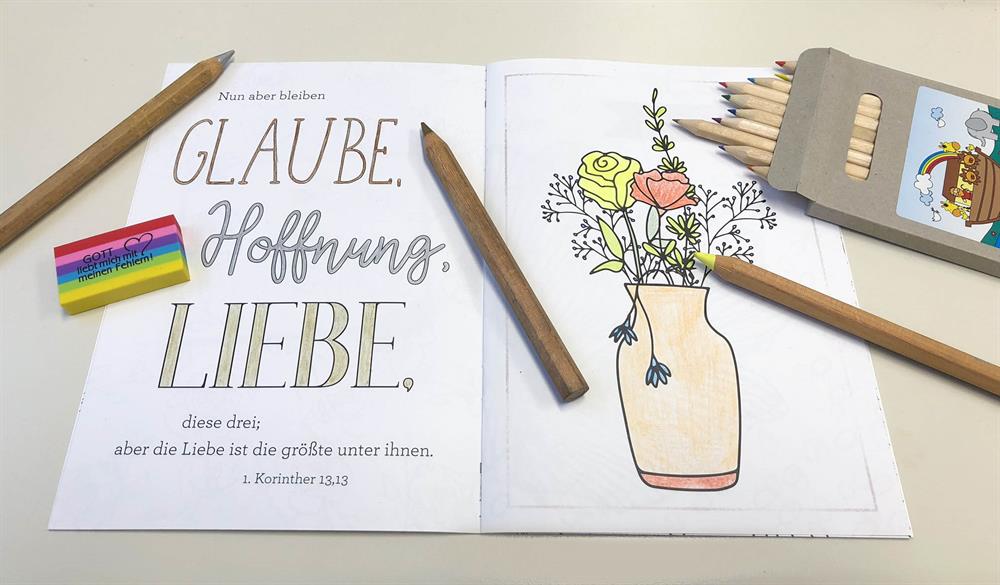 Nun aber bleiben
GLAUBE,
Hoffnung,
LIEBE,
diese drei;
aber die Liebe ist die größte unter ihnen.
1. Korinther 13,13
GOTT
liebt mich mit
meinen Fehlern!